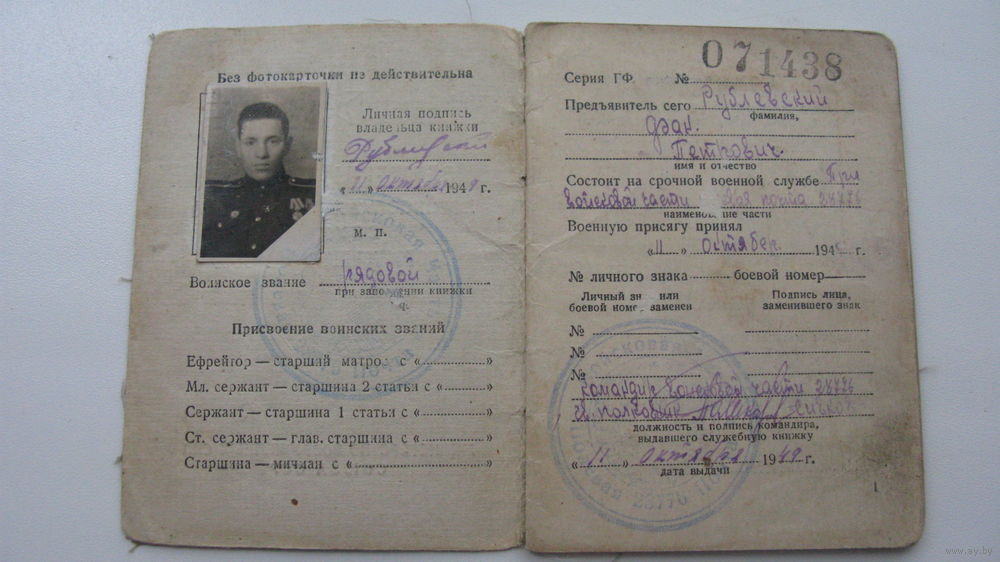 Без фотокарточки не действительна
Личная подпись
владельца книжки
Рублевский
„11" октября 1949 г.
м. п.
Воинское звание рядовой
при заполнении книжки
Присвоение воинских званий
Ефрейтор — старший матрос с «..........»
Мл. сержант — старшина 2 статьи с «..........»
Сержант — старшина 1 статьи с «..........»
Ст. сержант — глав. старшина с «..........»
Старшина — мичман с «..........»
Серия ГФ № 071438
Предъявитель сего Рублевский
фамилия,
Фран.
Петрович
имя и отчество
Состоит на срочной военной службе При
войсковой части почта
наименование части
Военную присягу принял
„11" октябр. 194 г.
№ личного знака боевой номер
Личный знак или
боевой номер заменен
Подпись лица,
заменившего знак
№
№
№
Командир войсковой части
гв. полковник
должность и подпись командира,
выдавшего служебную книжку
„11" октября 1949 г.
дата выдачи
1
www.ay.by